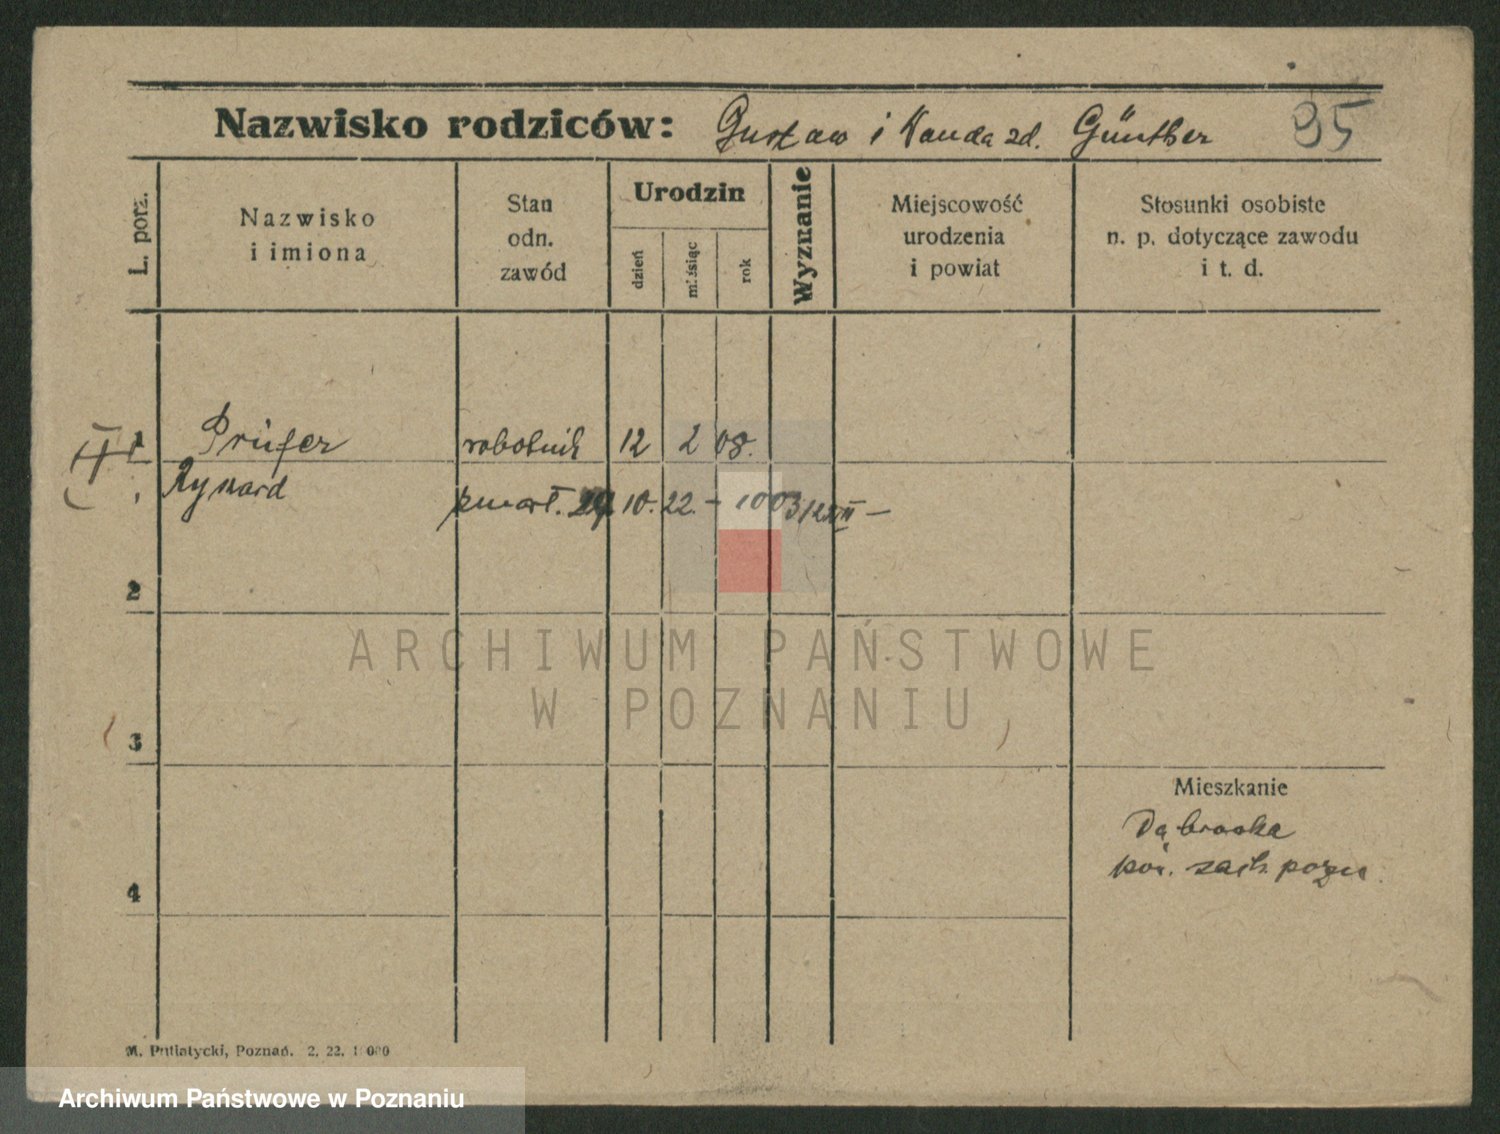 Nazwisko rodziców: Gustaw i Wanda zd. Günther 95
L. porz.
Nazwisko
i imiona
Stan
odn.
zawód
Urodzin
dzień
miesiąc
rok
Wyznanie
Miejscowość
urodzenia
i powiat
Stosunki osobiste
n. p. dotyczące zawodu
i t. d.
1 Prüfer robotnik 12 2 08.
Rynard zmarł. 29 10. 22. - 1003/22 II -
2
3
4
Mieszkanie
Dąbrowka
pow. zach. pozn.
M. Putiatycki, Poznań. 2. 22.
ARCHIWUM PAŃSTWOWE
W POZNANIU
Archiwum Państwowe w Poznaniu